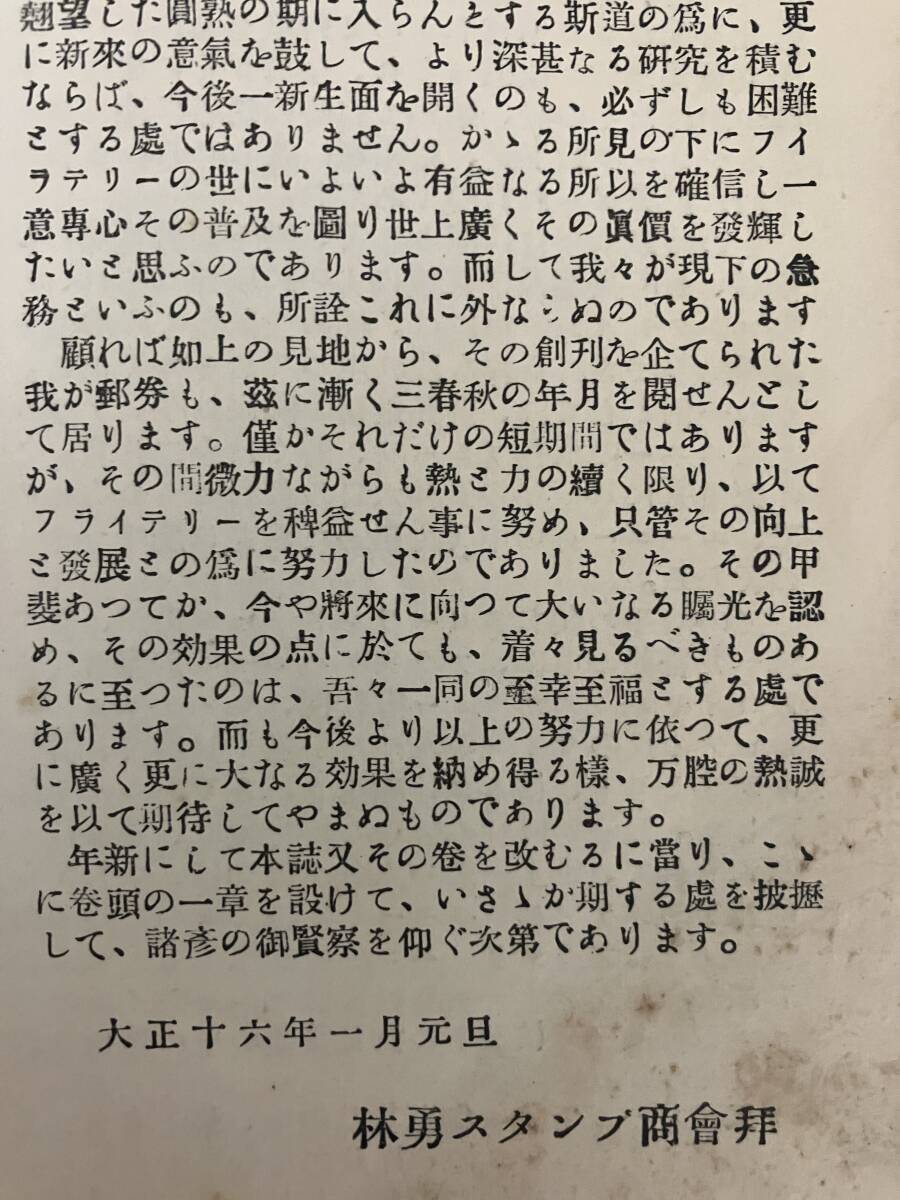 翹望した圓熟の期に入らんとする斯道の爲に、更
に新來の意氣を鼓して、より深甚なる硏究を積む
ならば、今後一新生面を開くのも、必ずしも困難
とする處ではありません。かゝる所見の下にフイ
ラテリーの世にいよいよ有益なる所以を確信し一
意專心その普及を圖り世上廣くその眞價を發輝し
たいと思ふのであります。而して我々が現下の急
務といふのも、所詮これに外ならぬのであります
顧れば如上の見地から、その創刊を企てられた
我が郵券も、茲に漸く三春秋の年月を閱せんとし
て居ります。僅かそれだけの短期間ではあります
が、その間微力ながらも熱と力の續く限り、以て
フライテリーを稗益せん事に努め、只管その向上
と發展との爲に努力したのでありました。その甲
斐あつてか、今や將來に向つて大いなる矚光を認
め、その効果の点に於ても、着々見るべきものあ
るに至つたのは、吾々一同の至幸至福とする處で
あります。而も今後より以上の努力に依つて、更
に廣く更に大なる効果を納め得る樣、万腔の熱誠
を以て期待してやまぬものであります。
年新にして本誌又その卷を改むるに當り、こゝ
に卷頭の一章を設けて、いさゝか期する處を披攊
して、諸彥の御賢察を仰ぐ次第であります。
大正十六年一月元旦
林勇スタンプ商會拜